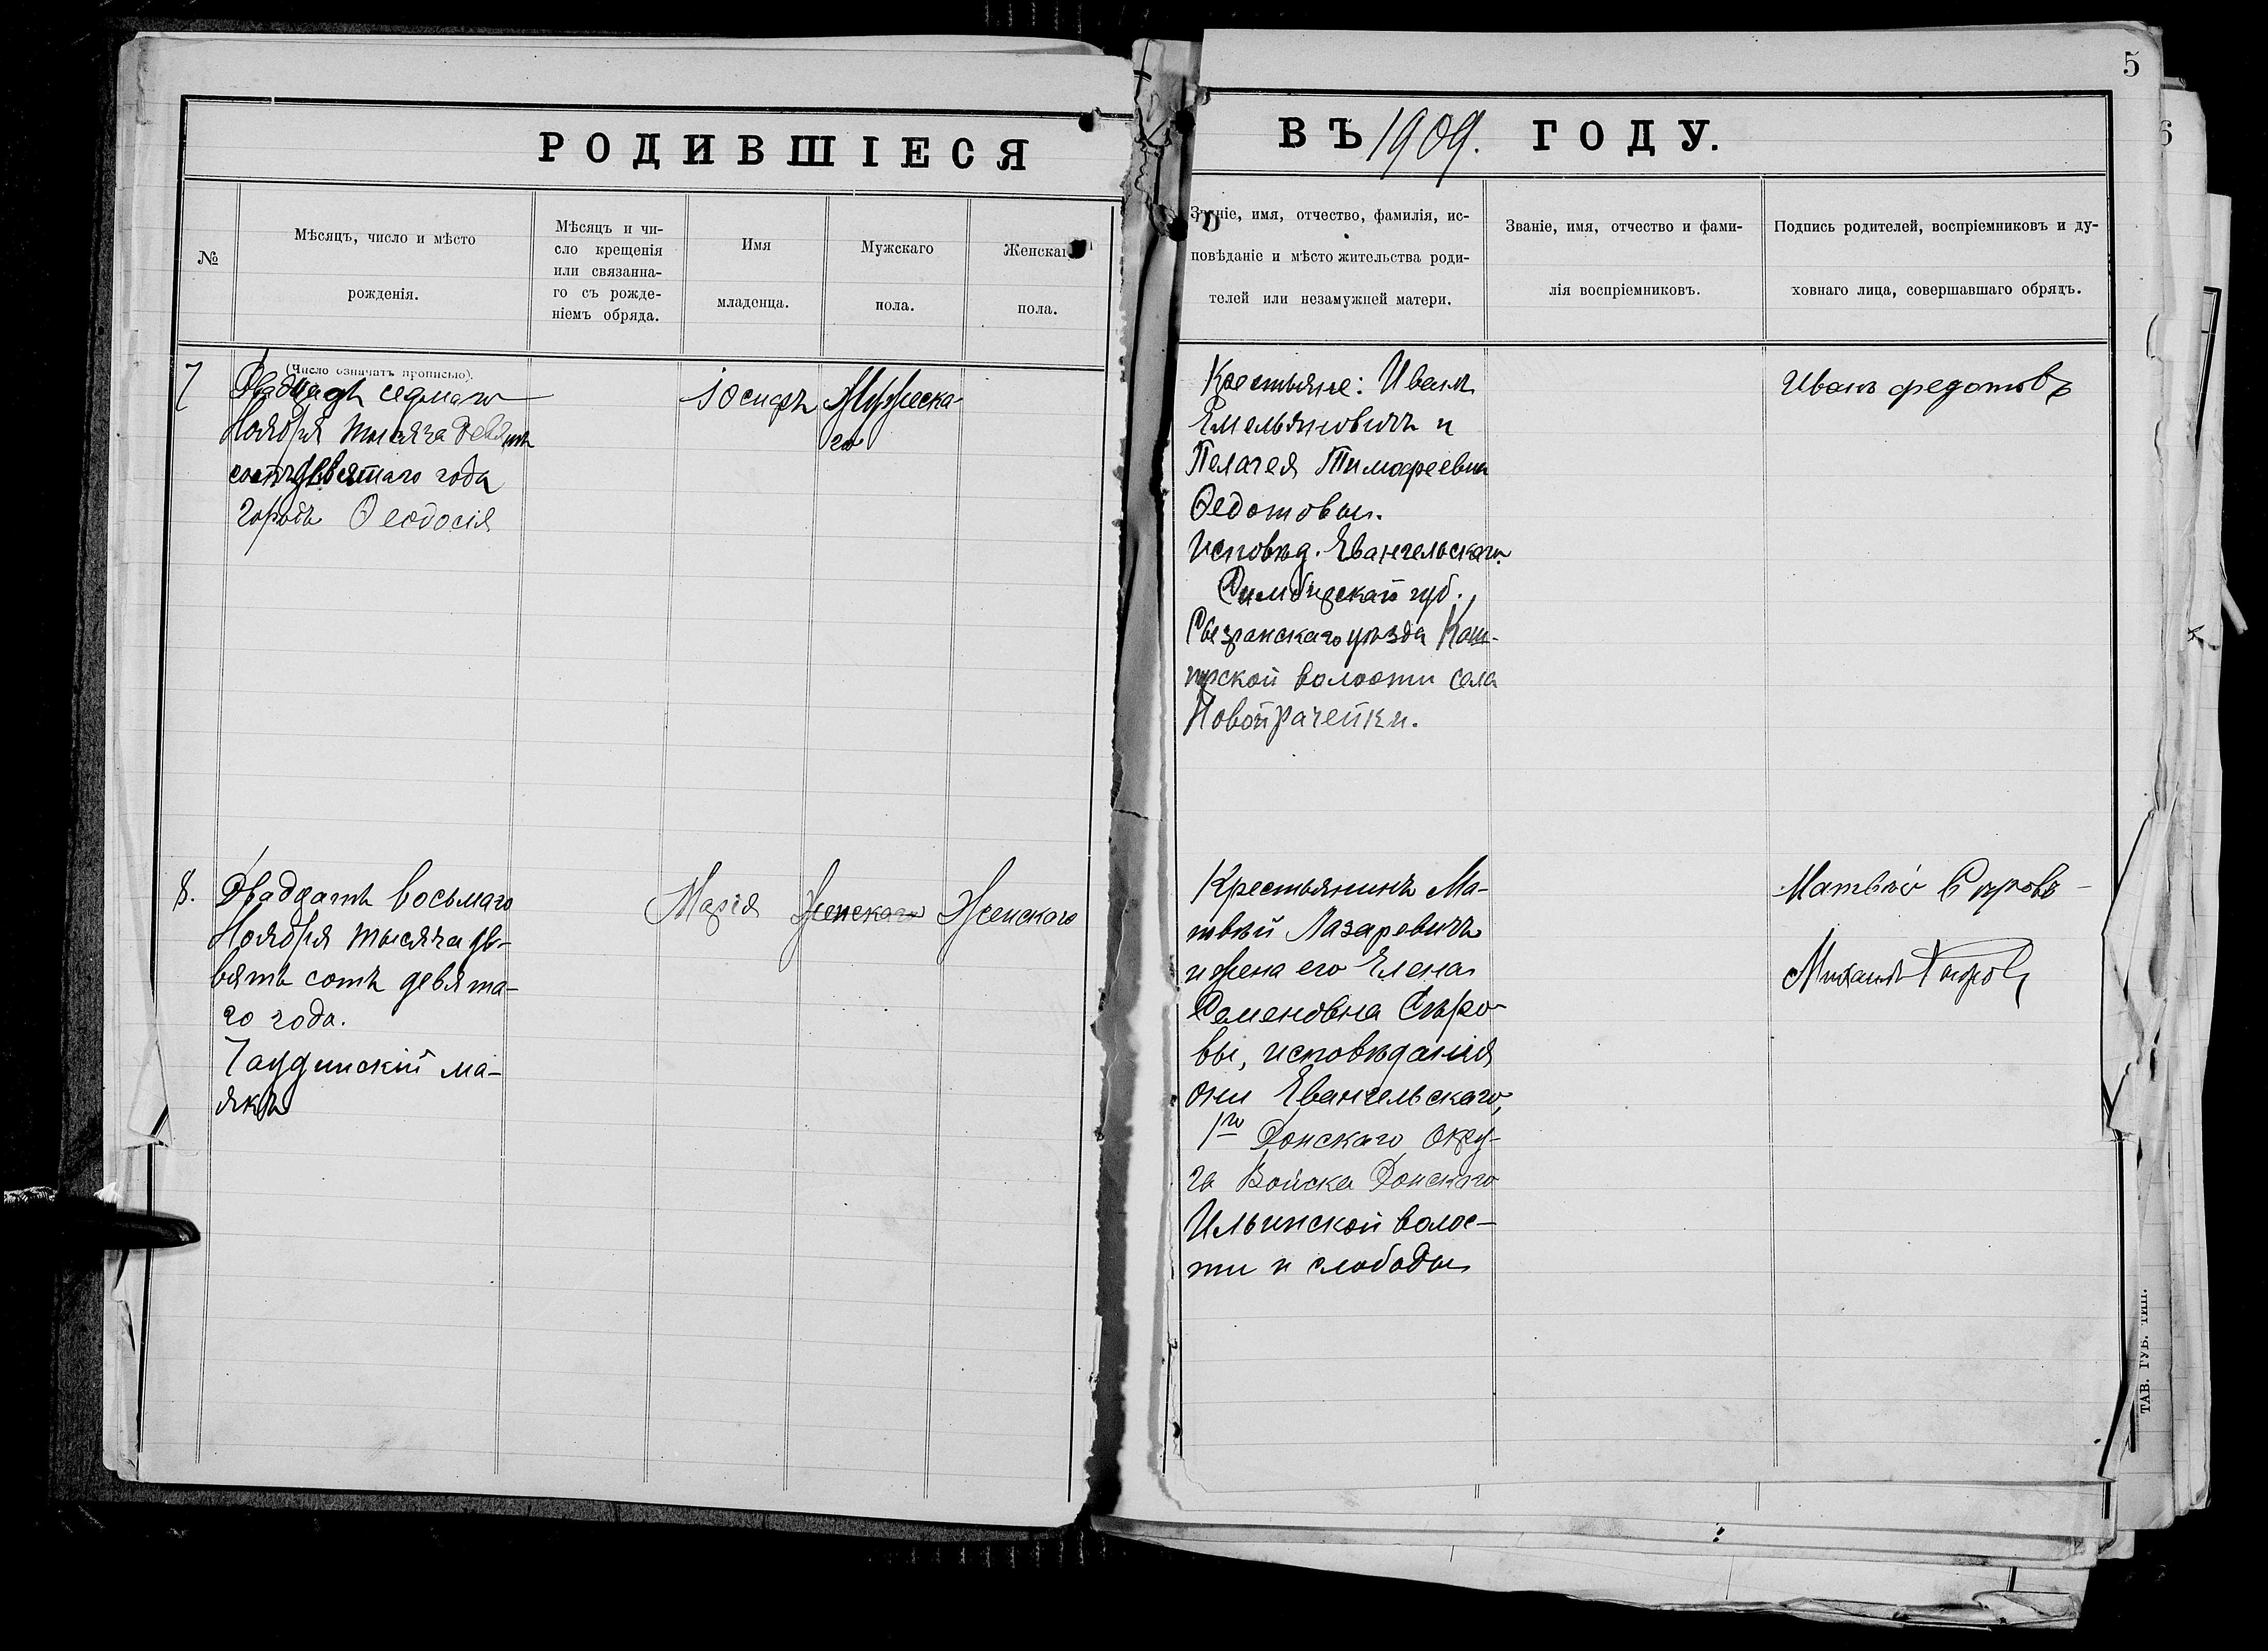 5
РОДИВШІЕСЯ ВЪ 1909. ГОДУ.
№
Мѣсяцъ, число и мѣсто
рожденія.
Мѣсяцъ и чи-
сло крещенія
или связанна-
го съ рожде-
ніемъ обряда.
Имя
младенца.
Мужскаго
пола.
Женскаго
пола.
Званіе, имя, отчество, фамилія, ис-
повѣданіе и мѣсто жительства роди-
телей или незамужней матери.
Званіе, имя, отчество и фами-
лія воспріемниковъ.
Подпись родителей, воспріемниковъ и ду-
ховнаго лица, совершавшаго обрядъ.
(Число означать прописью).
7
Двадцать седмаго
Ноября тысяча девять
сотъ девятаго года
городъ Ѳеодосія
Іосифъ
Мужеска-
го
Крестьяне: Иванъ
Емельяновичъ и
Пелагея Тимофеевна
Ѳедотовы.
Исповѣд. Евангельскаго.
Симбирской губ.
Сызранскаго уѣзда Каш-
пирской волости села
Новой Рачейки.
Иванъ федотовъ
8.
Двадцать восьмаго
Ноября тысяча де-
вять сотъ девята-
го года.
Чаудинскій ма-
якъ
Марія
Женскаго
Женскаго
Крестьянинъ Ма-
твѣй Лазаревичъ
и жена его Елена
Семеновна Сыро-
вы, исповѣданія
они Евангельскаго,
1го Донскаго Окру-
га Войска Донскаго
Ильинской волос-
ти и слободы
Матвѣй
Михаилъ
6
ТАВ. ГУБ. ТИП.